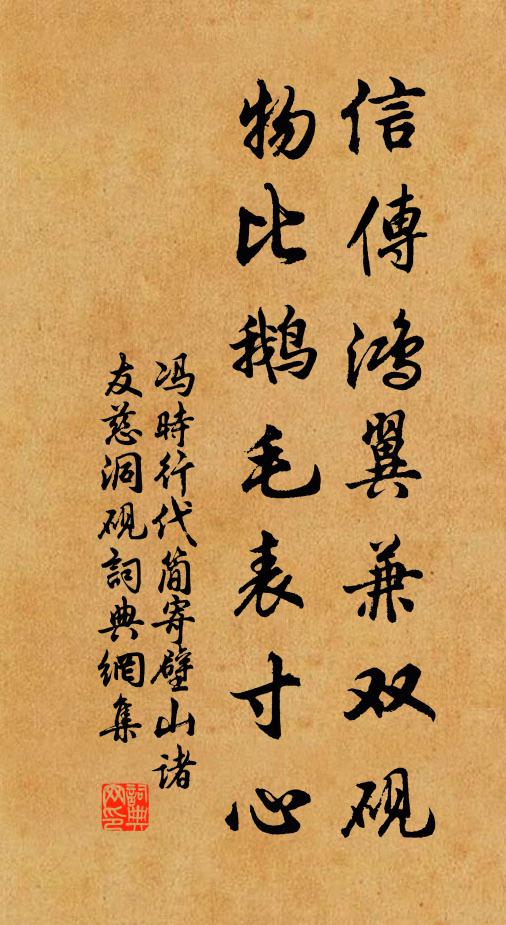 信傳鸿翼兼双砚
物比鹅毛表寸心
冯時行代簡寄璧山诸
友慈洞砚詞典網集
詞典網印